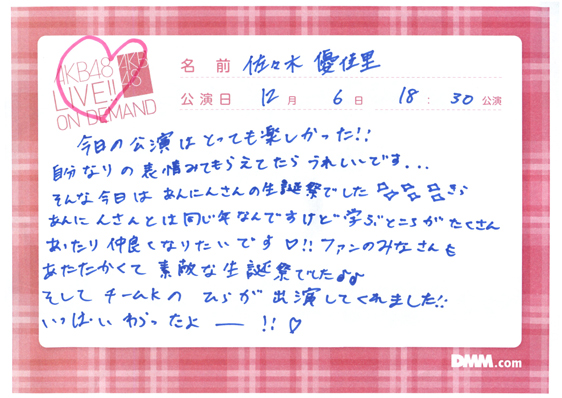 AKB48
LIVE!!
ON DEMAND
AKB
48
名前 佐々木 優佳里
公演日 12月 6日 18:30公演
今日の公演はとっても楽しかった!!
自分なりの表情みてもらえてたらうれしいです...
そんな今日はあんにんさんの生誕祭でした
あんにんさんとは同じ年なんですけど学ぶところがたくさん
あったり仲良くなりたいです♡!!ファンのみなさんも
あたたかくて素敵な生誕祭でした♪♪
そしてチームKの が出演してくれました!!
いっぱい わらったよー!!♡
DMM.com